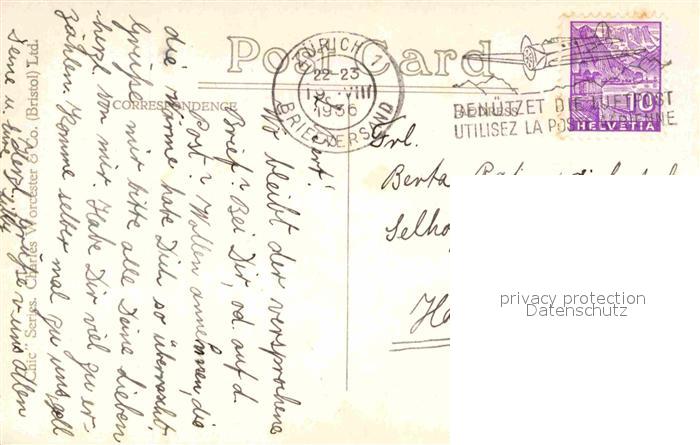 Post Card
CORRESPONDENCE
ADDRESS
"Chic" Series. Charles Worcester & Co. (Bristol) Ltd.
ZÜRICH 1
22-23
VIII
1936
BRIEFVERSAND
BENÜTZET DIE LUFTPOST
UTILISEZ LA POSTE AERIENNE
10
HELVETIA
Frl.
Berta
Selho
Ha
Wo bleibt der versprochene
Brief? Bei Dir, od. auf d.
Post? Wollen annehmen, die
die Wärme habe Dich so überrascht.
Grüsse mir bitte alle Deine Lieben
herzl. von mir. Habe Dir viel zu er-
zählen. Komme selber mal zu uns, gell
Herzl. Grüsse v. uns allen
Deine
privacy protection
Datenschutz